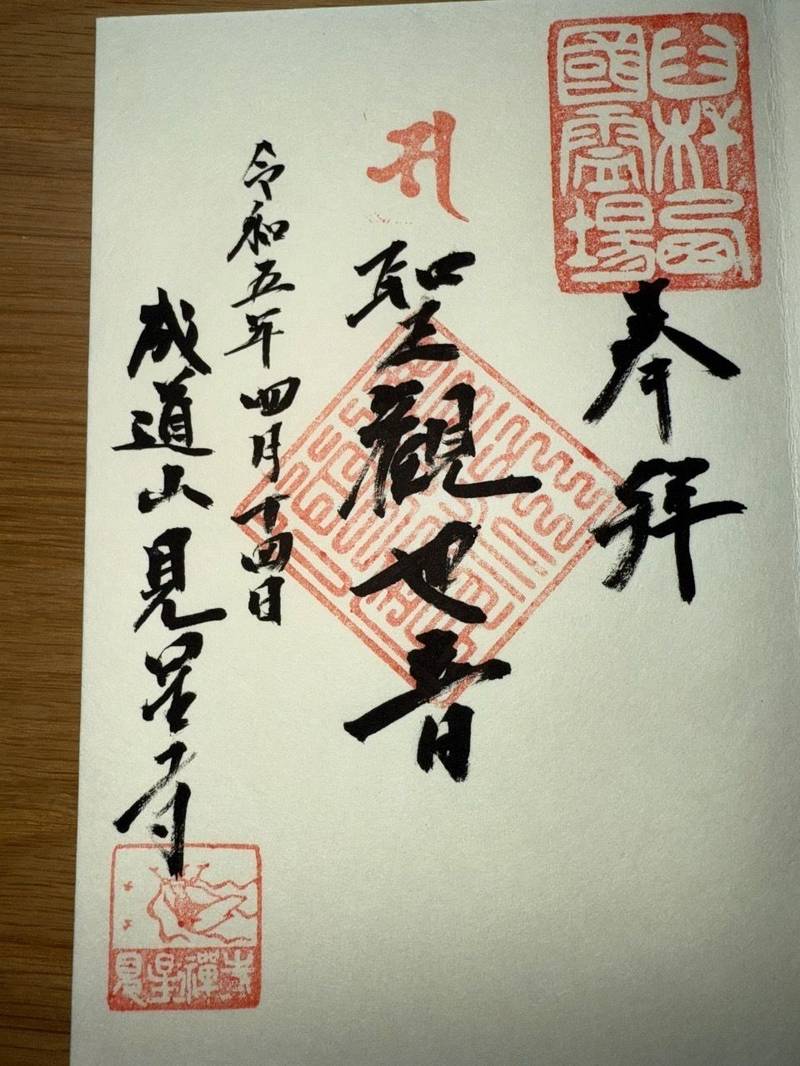 臼杵西
國霊場
奉拝
聖觀世音
令和五年四月十四日
成道山見星寺
見星禪寺